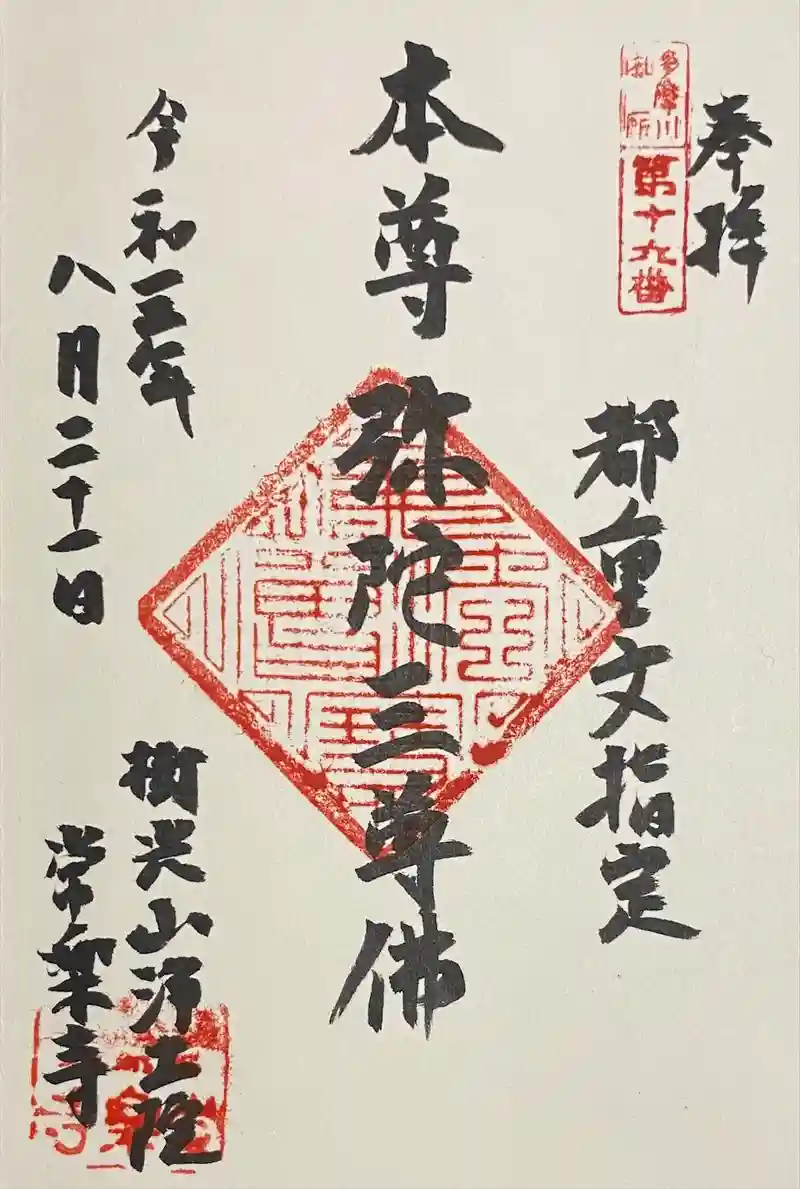 奉拝
多摩川
第十
番
都重文指定
本尊 弥陀三尊佛
令和五年
八月二十一日
樹光山浄土院
常楽寺